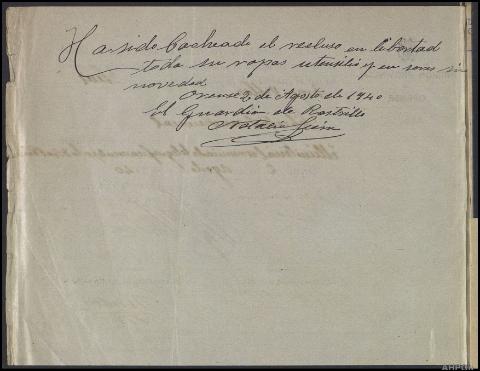 Ha sido Cacheado el recluso en libertad
toda su ropas utensilio y en sones sin
novedad
Orense 2 de Agosto de 1940
El Guardian de Rastrillo
AHPOU